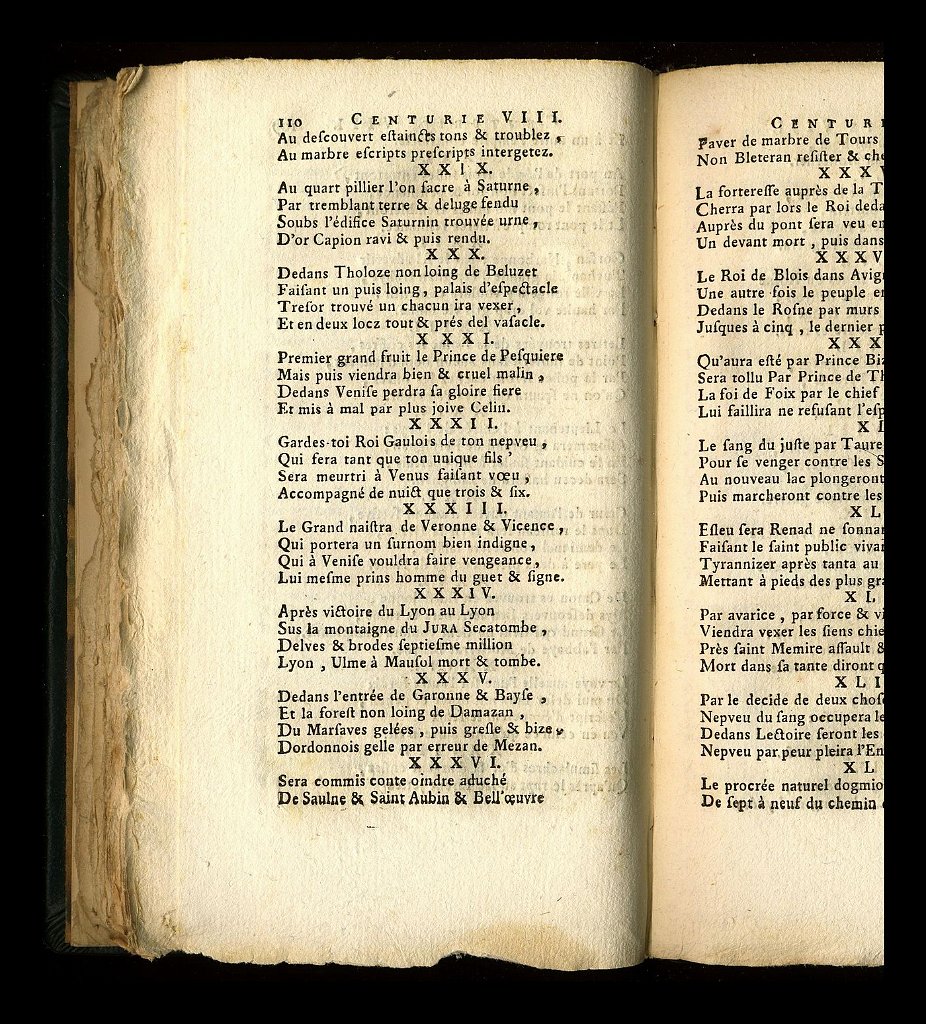 110 CENTURIE VIII.
Au deſcouvert eſtaincts tons & troublez,
Au marbre eſcripts preſcripts intergetez.
XXIX.
Au quart pillier l'on ſacre à Saturne,
Par tremblant terre & deluge fendu
Soubs l'édifice Saturnin trouvée urne,
D'or Capion ravi & puis rendu.
XXX.
Dedans Tholoze non loing de Beluzet
Faiſant un puis loing, palais d'eſpectacle
Treſor trouvé un chacun ira vexer,
Et en deux locz tout & prés del vaſacle.
XXXI.
Premier grand fruit le Prince de Peſquiere
Mais puis viendra bien & cruel malin,
Dedans Veniſe perdra ſa gloire fiere
Et mis à mal par plus joive Celin.
XXXII.
Gardes-toi Roi Gaulois de ton nepveu,
Qui fera tant que ton unique fils'
Sera meurtri à Venus faiſant vœu,
Accompagné de nuict que trois & ſix.
XXXIII.
Le Grand naiſtra de Veronne & Vicence,
Qui portera un ſurnom bien indigne,
Qui à Veniſe vouldra faire vengeance,
Lui meſme prins homme du guet & ſigne.
XXXIV.
Après victoire du Lyon au Lyon
Sus la montaigne du JURA Secatombe,
Delves & brodes ſeptieſme million
Lyon, Ulme à Mauſol mort & tombe.
XXXV.
Dedans l'entrée de Garonne & Bayſe,
Et la foreſt non loing de Damazan,
Du Marſaves gelées, puis greſle & bize,
Dordonnois gelle par erreur de Mezan.
XXXVI.
Sera commis conte oindre aduché
De Saulne & Saint Aubin & Bell'œuvre
CENTURI
Paver de marbre de Tours
Non Bleteran reſiſter & che
XXXV
La fortereſſe auprès de la T
Cherra par lors le Roi deda
Auprès du pont ſera veu en
Un devant mort, puis dans
XXXV
Le Roi de Blois dans Avig
Une autre fois le peuple e
Dedans le Roſne par murs
Juſques à cinq, le dernier p
XXX
Qu'aura eſté par Prince Biz
Sera tollu Par Prince de Th
La foi de Foix par le chief
Lui faillira ne refuſant l'eſp
XL
Le ſang du juſte par Taure
Pour ſe venger contre les S
Au nouveau lac plongeront
Puis marcheront contre les
XL
Eſleu ſera Renad ne ſonnan
Faiſant le ſaint public vivan
Tyrannizer après tanta au
Mettant à pieds des plus gra
XL
Par avarice, par force & vi
Viendra vexer les ſiens chie
Près ſaint Memire aſſault &
Mort dans ſa tante diront q
XLI
Par le decide de deux choſe
Nepveu du ſang occupera le
Dedans Lectoire ſeront les
Nepveu par peur pleira l'En
XL
Le procrée naturel dogmio
De ſept à neuf du chemin